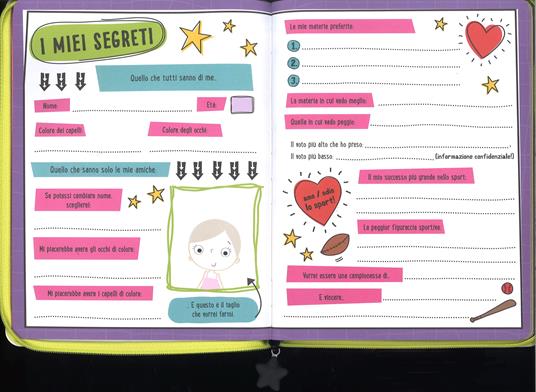 I MIEI SEGRETI
Quello che tutti sanno di me..
Nome:
Età:
Colore dei capelli:
Colore degli occhi:
Quello che sanno solo le mie amiche.
Se potessi cambiare nome,
sceglierei:
Mi piacerebbe avere gli occhi di colore:
Mi piacerebbe avere i capelli di colore:
... E questo è il taglio
che vorrei farmi.
Le mie materie preferite:
1.
2.
3.
La materia in cui vado meglio:
Quella in cui vado peggio:
Il voto più alto che ho preso:
Il voto più basso:
(informazione confidenziale!)
amo / odio
lo sport!
Il mio successo più grande nello sport:
La peggior figuraccia sportiva:
Vorrei essere una campionessa di..
E vincere..